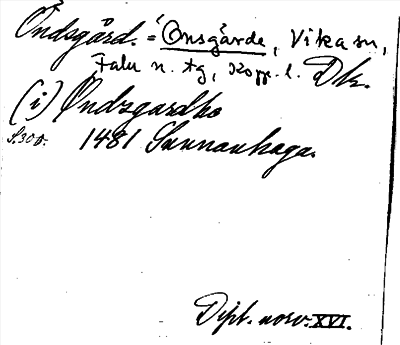 Öndsgård. = Önsgärde, Vika sn,
Falu n. tg, Kopp. l. Dk.
(i) Øndzgardho
S. 300. 1481 Sunnanhaga.
Dipl. norv. XVI.